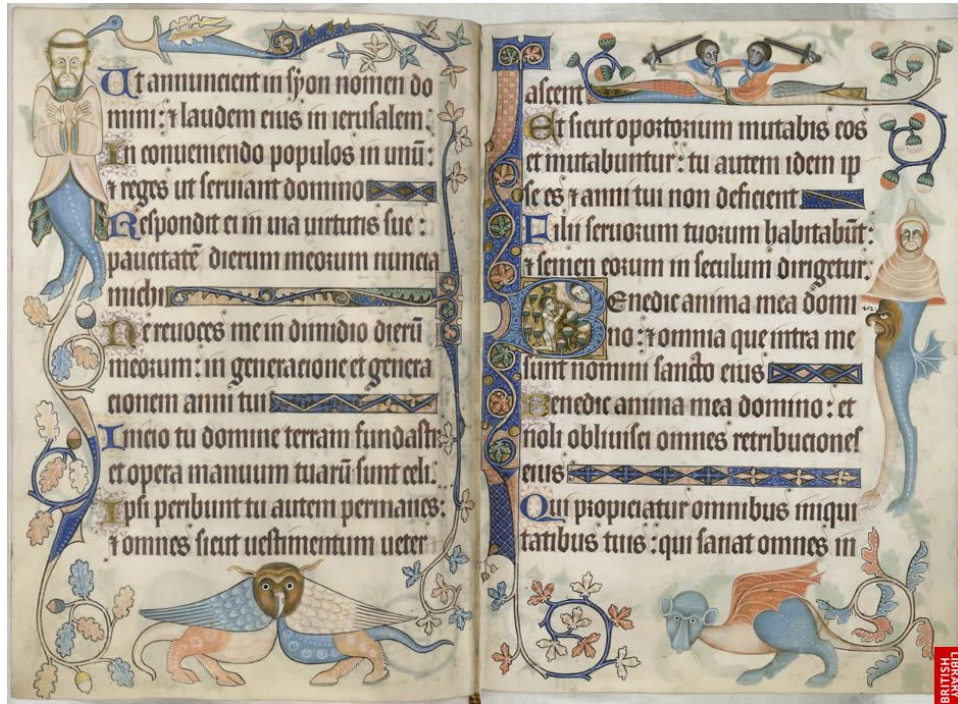 Ut annuncient in syon nomen do
mini: ⁊ laudem eius in ierusalem:
In conueniendo populos in unū:
⁊ reges ut seruiant domino
Respondit ei in uia uirtutis sue:
paucitatē dierum meorum nuncia
michi
Ne reuoces me in dimidio dierū
meorum: in generacione et genera
cionem anni tui
Inicio tu domine terram fundasti:
et opera manuum tuarū sunt celi.
Ipsi peribunt tu autem permanes:
⁊ omnes sicut uestimentum ueter
ascent
Et sicut oportorium mutabis eos
et mutabuntur: tu autem idem ip
se es ⁊ anni tui non deficient
Filii seruorum tuorum habitabūt:
⁊ semen eorum in seculum dirigetur.
Benedic anima mea domi
no: ⁊ omnia que intra me
sunt nomini sancto eius
Benedic anima mea domino: et
noli obliuisci omnes retribuciones
eius
Qui propiciatur omnibus iniqui
tatibus tuis: qui sanat omnes in
BRITISH
LIBRARY